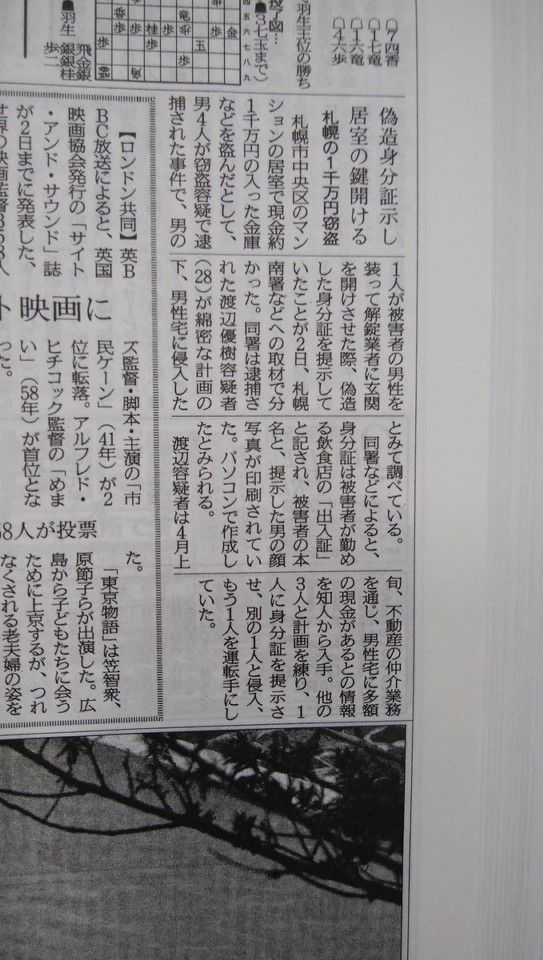 7四香
1七竜
1六竜
4六歩
羽生王位の勝ち
3七玉まで)
羽生
飛金銀
銀銀桂
歩二
偽造身分証示し
居室の鍵開ける
札幌の1千万円窃盗
札幌市中央区のマン
ションの居室で現金約
1千万円の入った金庫
などを盗んだとして、
男4人が窃盗容疑で逮
捕された事件で、男の
1人が被害者の男性を
装って解錠業者に玄関
を開けさせた際、偽造
した身分証を提示して
いたことが2日、札幌
南署などへの取材で分
かった。同署は逮捕さ
れた渡辺優樹容疑者
(28)が綿密な計画の
下、男性宅に侵入した
とみて調べている。
同署などによると、
身分証は被害者が勤め
る飲食店の「出入証」
と記され、被害者の本
名と、提示した男の顔
写真が印刷されてい
た。パソコンで作成し
たとみられる。
渡辺容疑者は4月上
旬、不動産の仲介業務
を通じ、男性宅に多額
の現金があるとの情報
を知人から入手。他の
3人と計画を練り、1
人に身分証を提示さ
せ、別の1人と侵入、
もう1人を運転手にし
ていた。
【ロンドン共同】英B
BC放送によると、英国
映画協会発行の「サイト
・アンド・サウンド」誌
が2日までに発表した、
ト映画に
ズ監督・脚本・主演の「市
民ケーン」(41年)が2
位に転落。アルフレド・
ヒチコック監督の「めま
い」(58年)が首位とな
った。
58人が投票
た。
「東京物語」は笠智衆、
原節子らが出演した。広
島から子どもたちに会う
ために上京するが、つれ
なくされる老夫婦の姿を